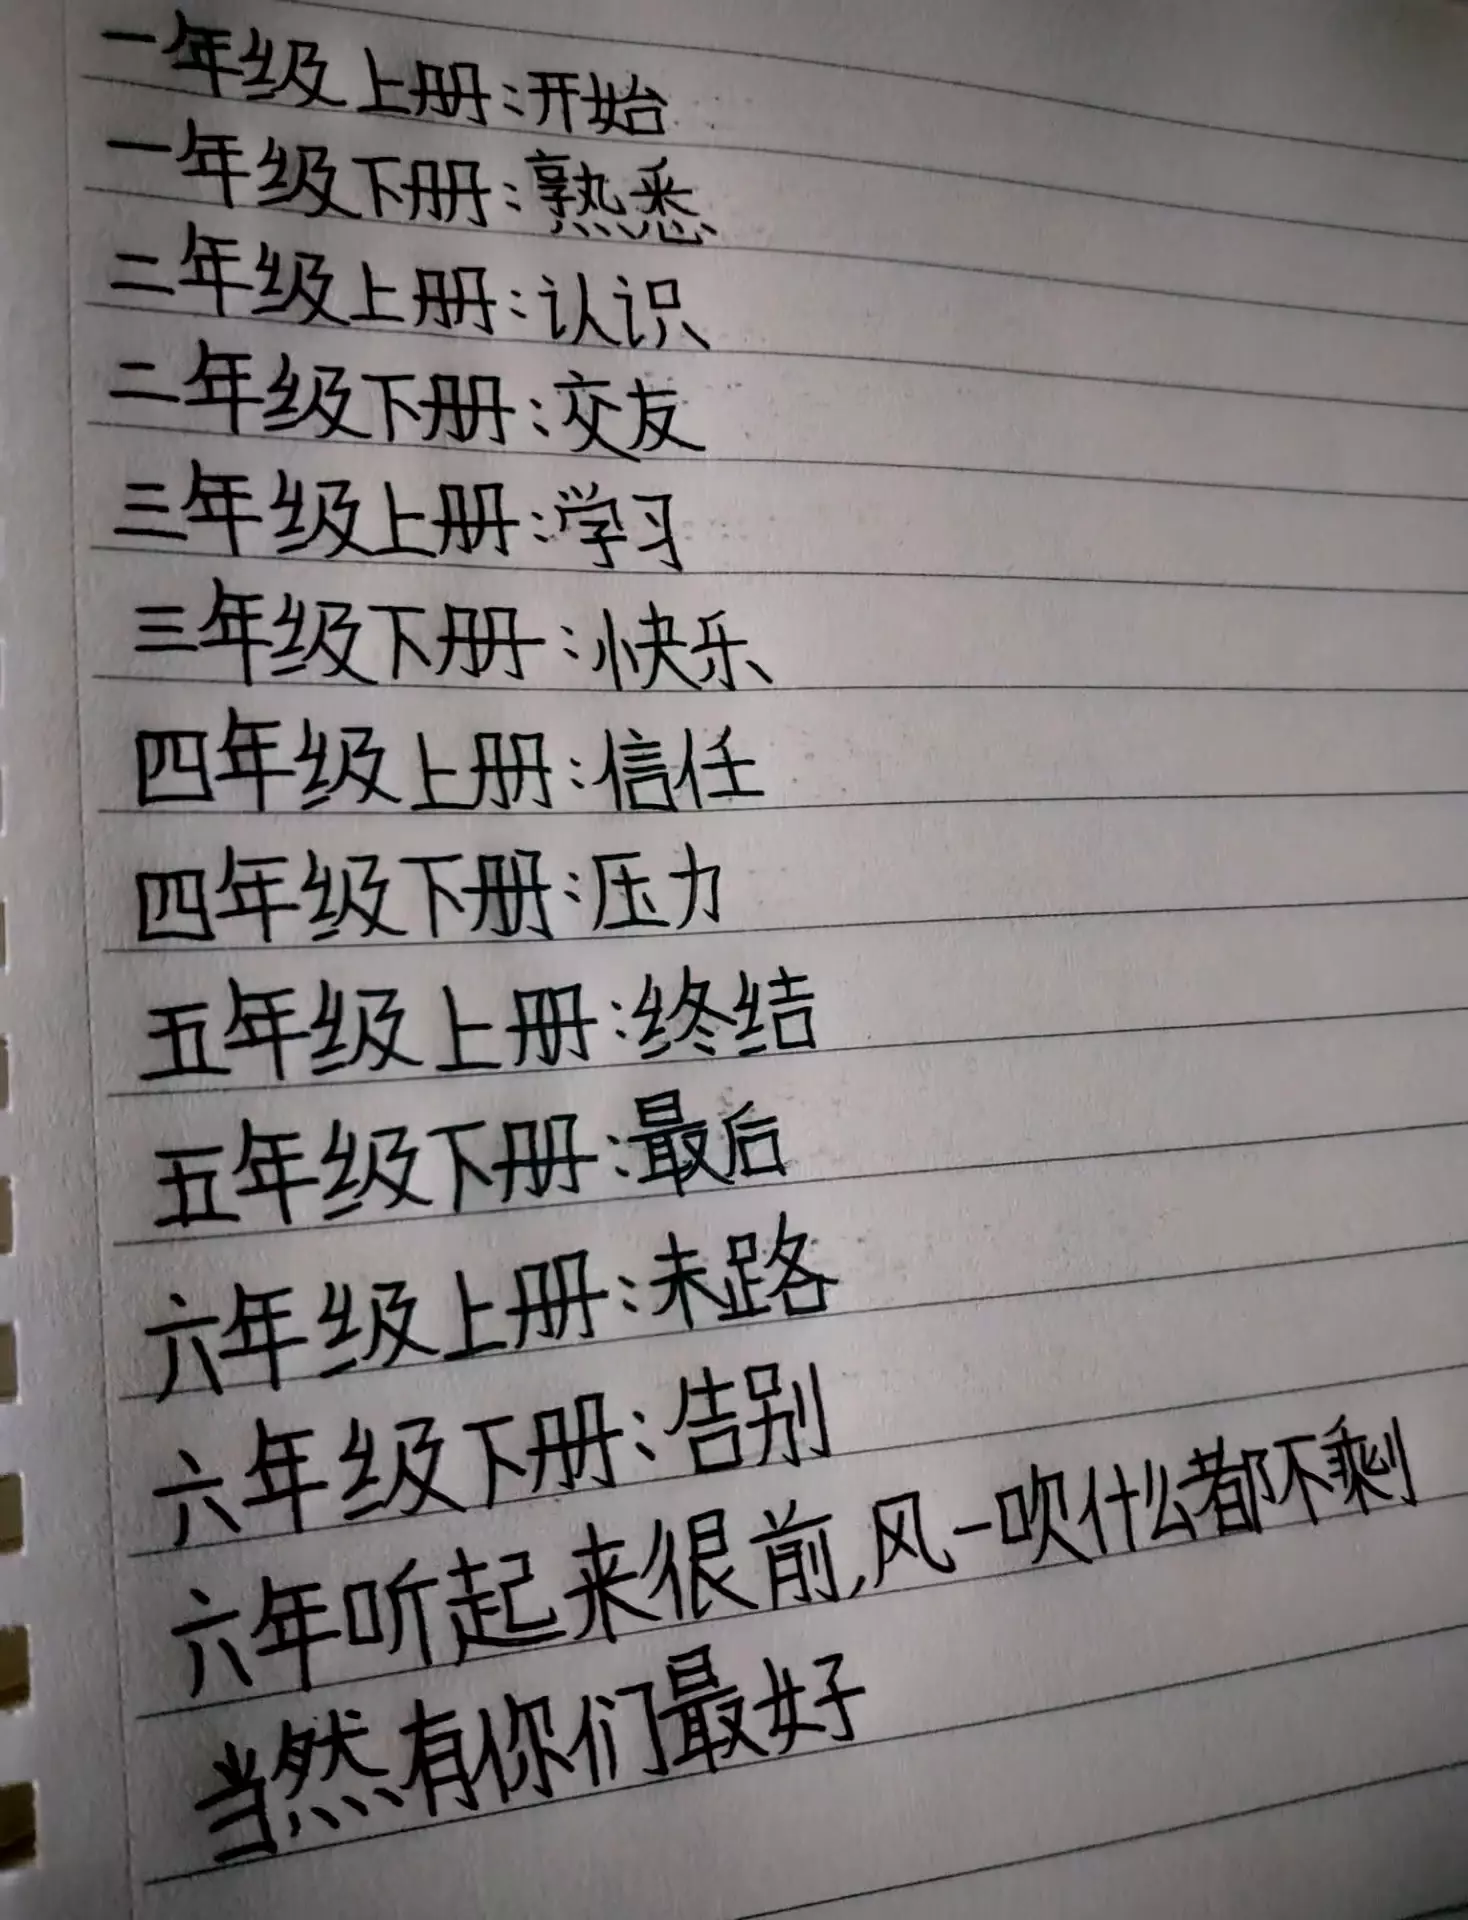 一年级上册:开始
一年级下册:熟悉
二年级上册:认识
二年级下册:交友
三年级上册:学习
三年级下册:快乐
四年级上册:信任
四年级下册:压力
五年级上册:终结
五年级下册:最后
六年级上册:末路
六年级下册:告别
六年听起来很前,风一吹什么都不剩
当然有你们最好